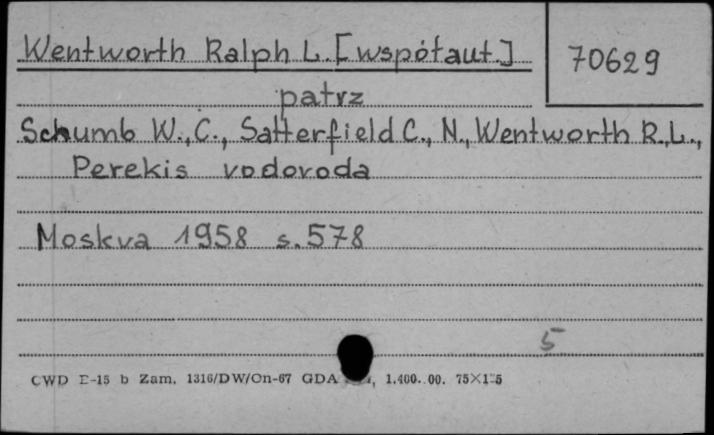 Wentworth Ralph L. [współaut.]
70629
patrz
Schumb W., C., Satterfield C., N., Wentworth R., L.,
Perekis vodoroda
Moskva 1958 s. 578
5
CWD E-15 b Zam. 1316/DW/On-67 GDA